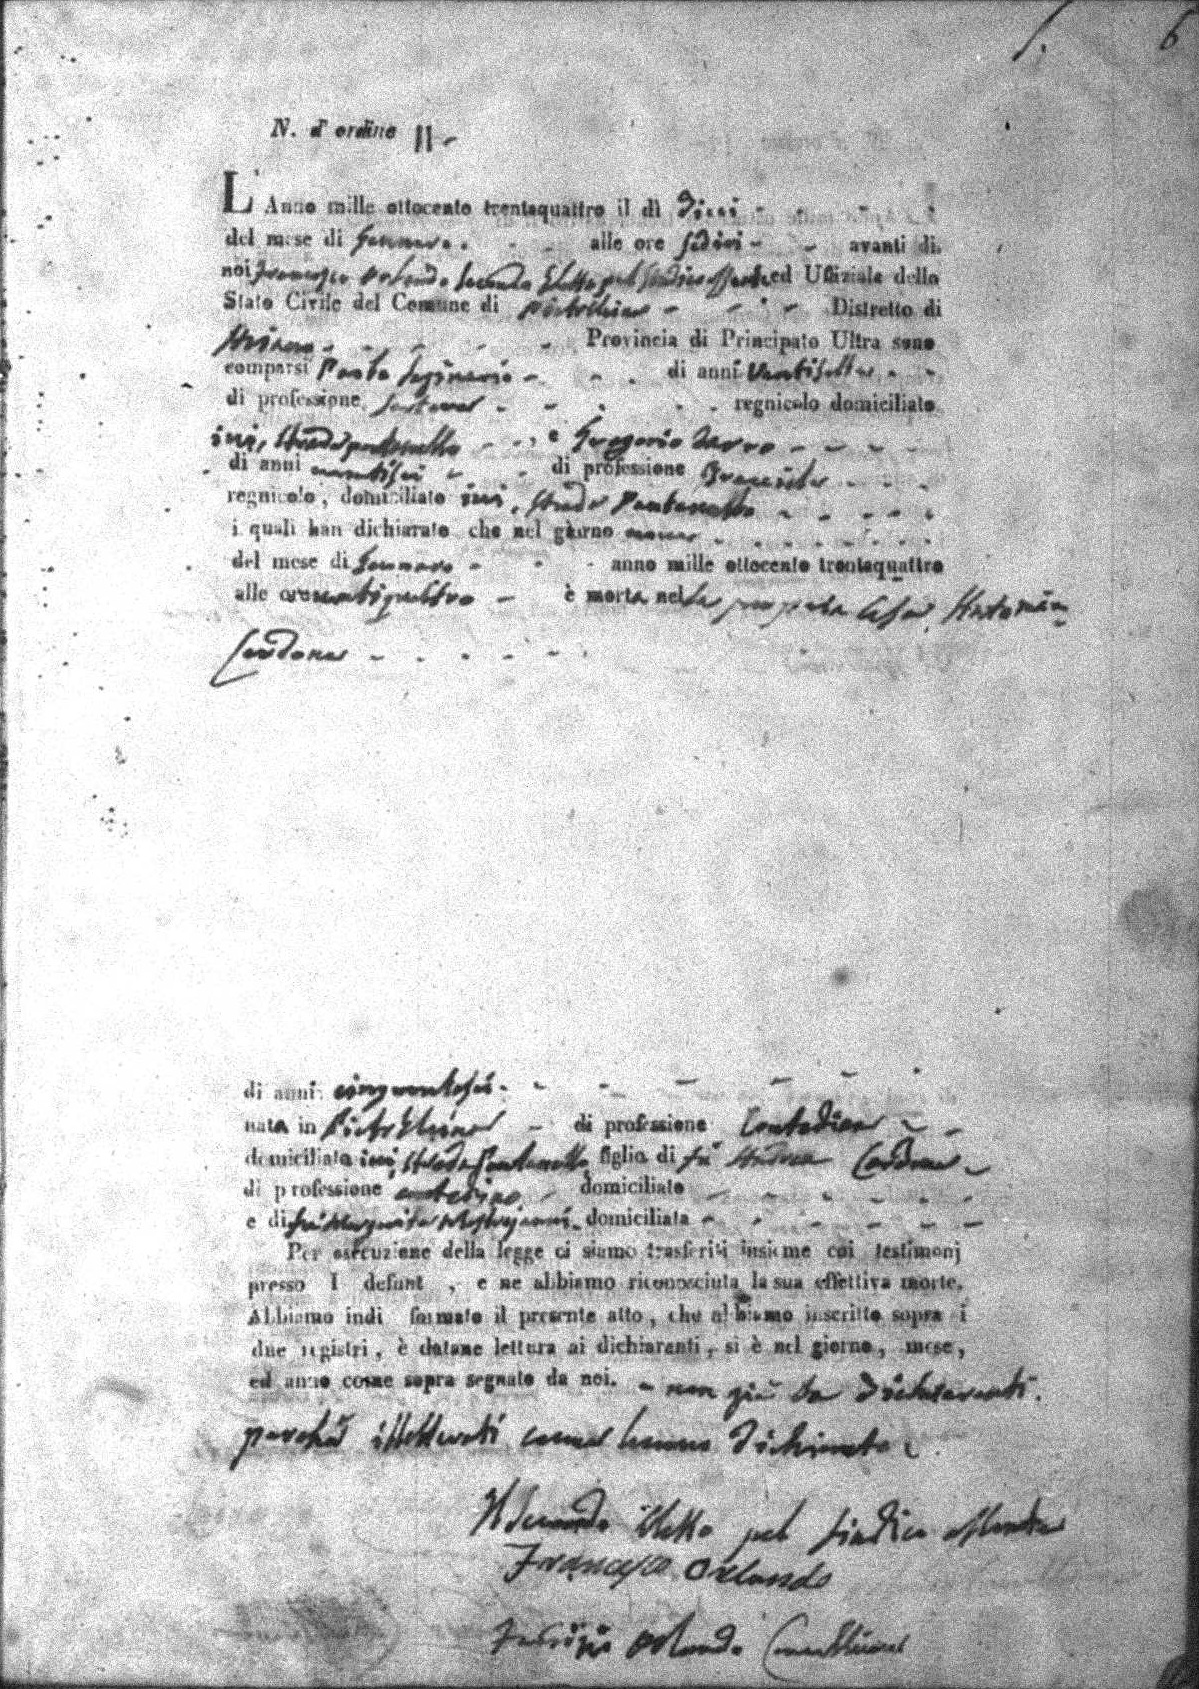 6
N. d' ordine 11
L' Anno mille ottocento trentaquattro il dì Dieci
del mese di Gennaro alle ore sedici avanti di
noi Francesco Orlando Secondo Eletto pel Sindaco assente ed Uffiziale dello
Stato Civile del Comune di Distretto di
Provincia di Principato Ultra sono
comparsi di anni Ventisette
di professione regnicolo domiciliato
ivi, Strada e Gregorio
di anni ventisei di professione Bracciale
regnicolo, domiciliato ivi, Strada Pantanello
i quali han dichiarato che nel giorno nove
del mese di Gennaro anno mille ottocento trentaquattro
alle ore ventiquattro è morta nella propria Casa
Cardone
di anni cinquantasei
nata in di professione Contadina
domiciliata ivi, Strada Pantanello figlia di fu Andrea Cardone
di professione contadino domiciliato
e di fu Margarita domiciliata
Per esecuzione della legge ci siamo trasferiti insieme coi testimonj
presso l defunt , e ne abbiamo riconosciuta la sua effettiva morte.
Abbiamo indi formato il presente atto, che abbiamo inscritto sopra i
due registri, è datane lettura ai dichiaranti, si è nel giorno, mese,
ed anno come sopra segnato da noi. non già da Dichiaranti
perché illetterati come hanno Dichiarato
Il Secondo Eletto pel Sindaco assente
Francesco Orlando
Orlando Cancelliere